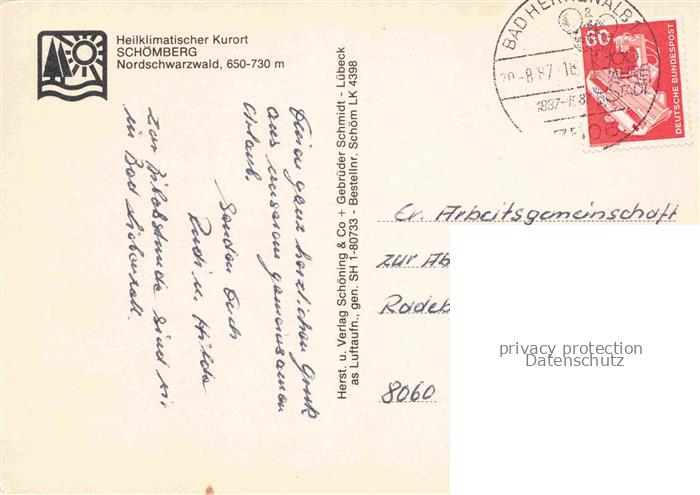 Heilklimatischer Kurort
SCHÖMBERG
Nordschwarzwald, 650-730 m
Einen ganz herzlichen Gruß
aus unserem gemeinsamen
Urlaub.
Senden Euch
Rudi u. Hilde
Zur Bibelstunde sind wir
in Bad Liebenzell.
Herst. u. Verlag Schöning & Co + Gebrüder Schmidt - Lübeck
as Luftaufn., gen. SH 1-80733 - Bestellnr. Schöm LK 4398
BAD HERRENALB 1
-8.87-18
1887-
STADT
7506
60
DEUTSCHE BUNDESPOST
Ev. Arbeitsgemeinschaft
zur Ab
Radeb
8060
privacy protection
Datenschutz